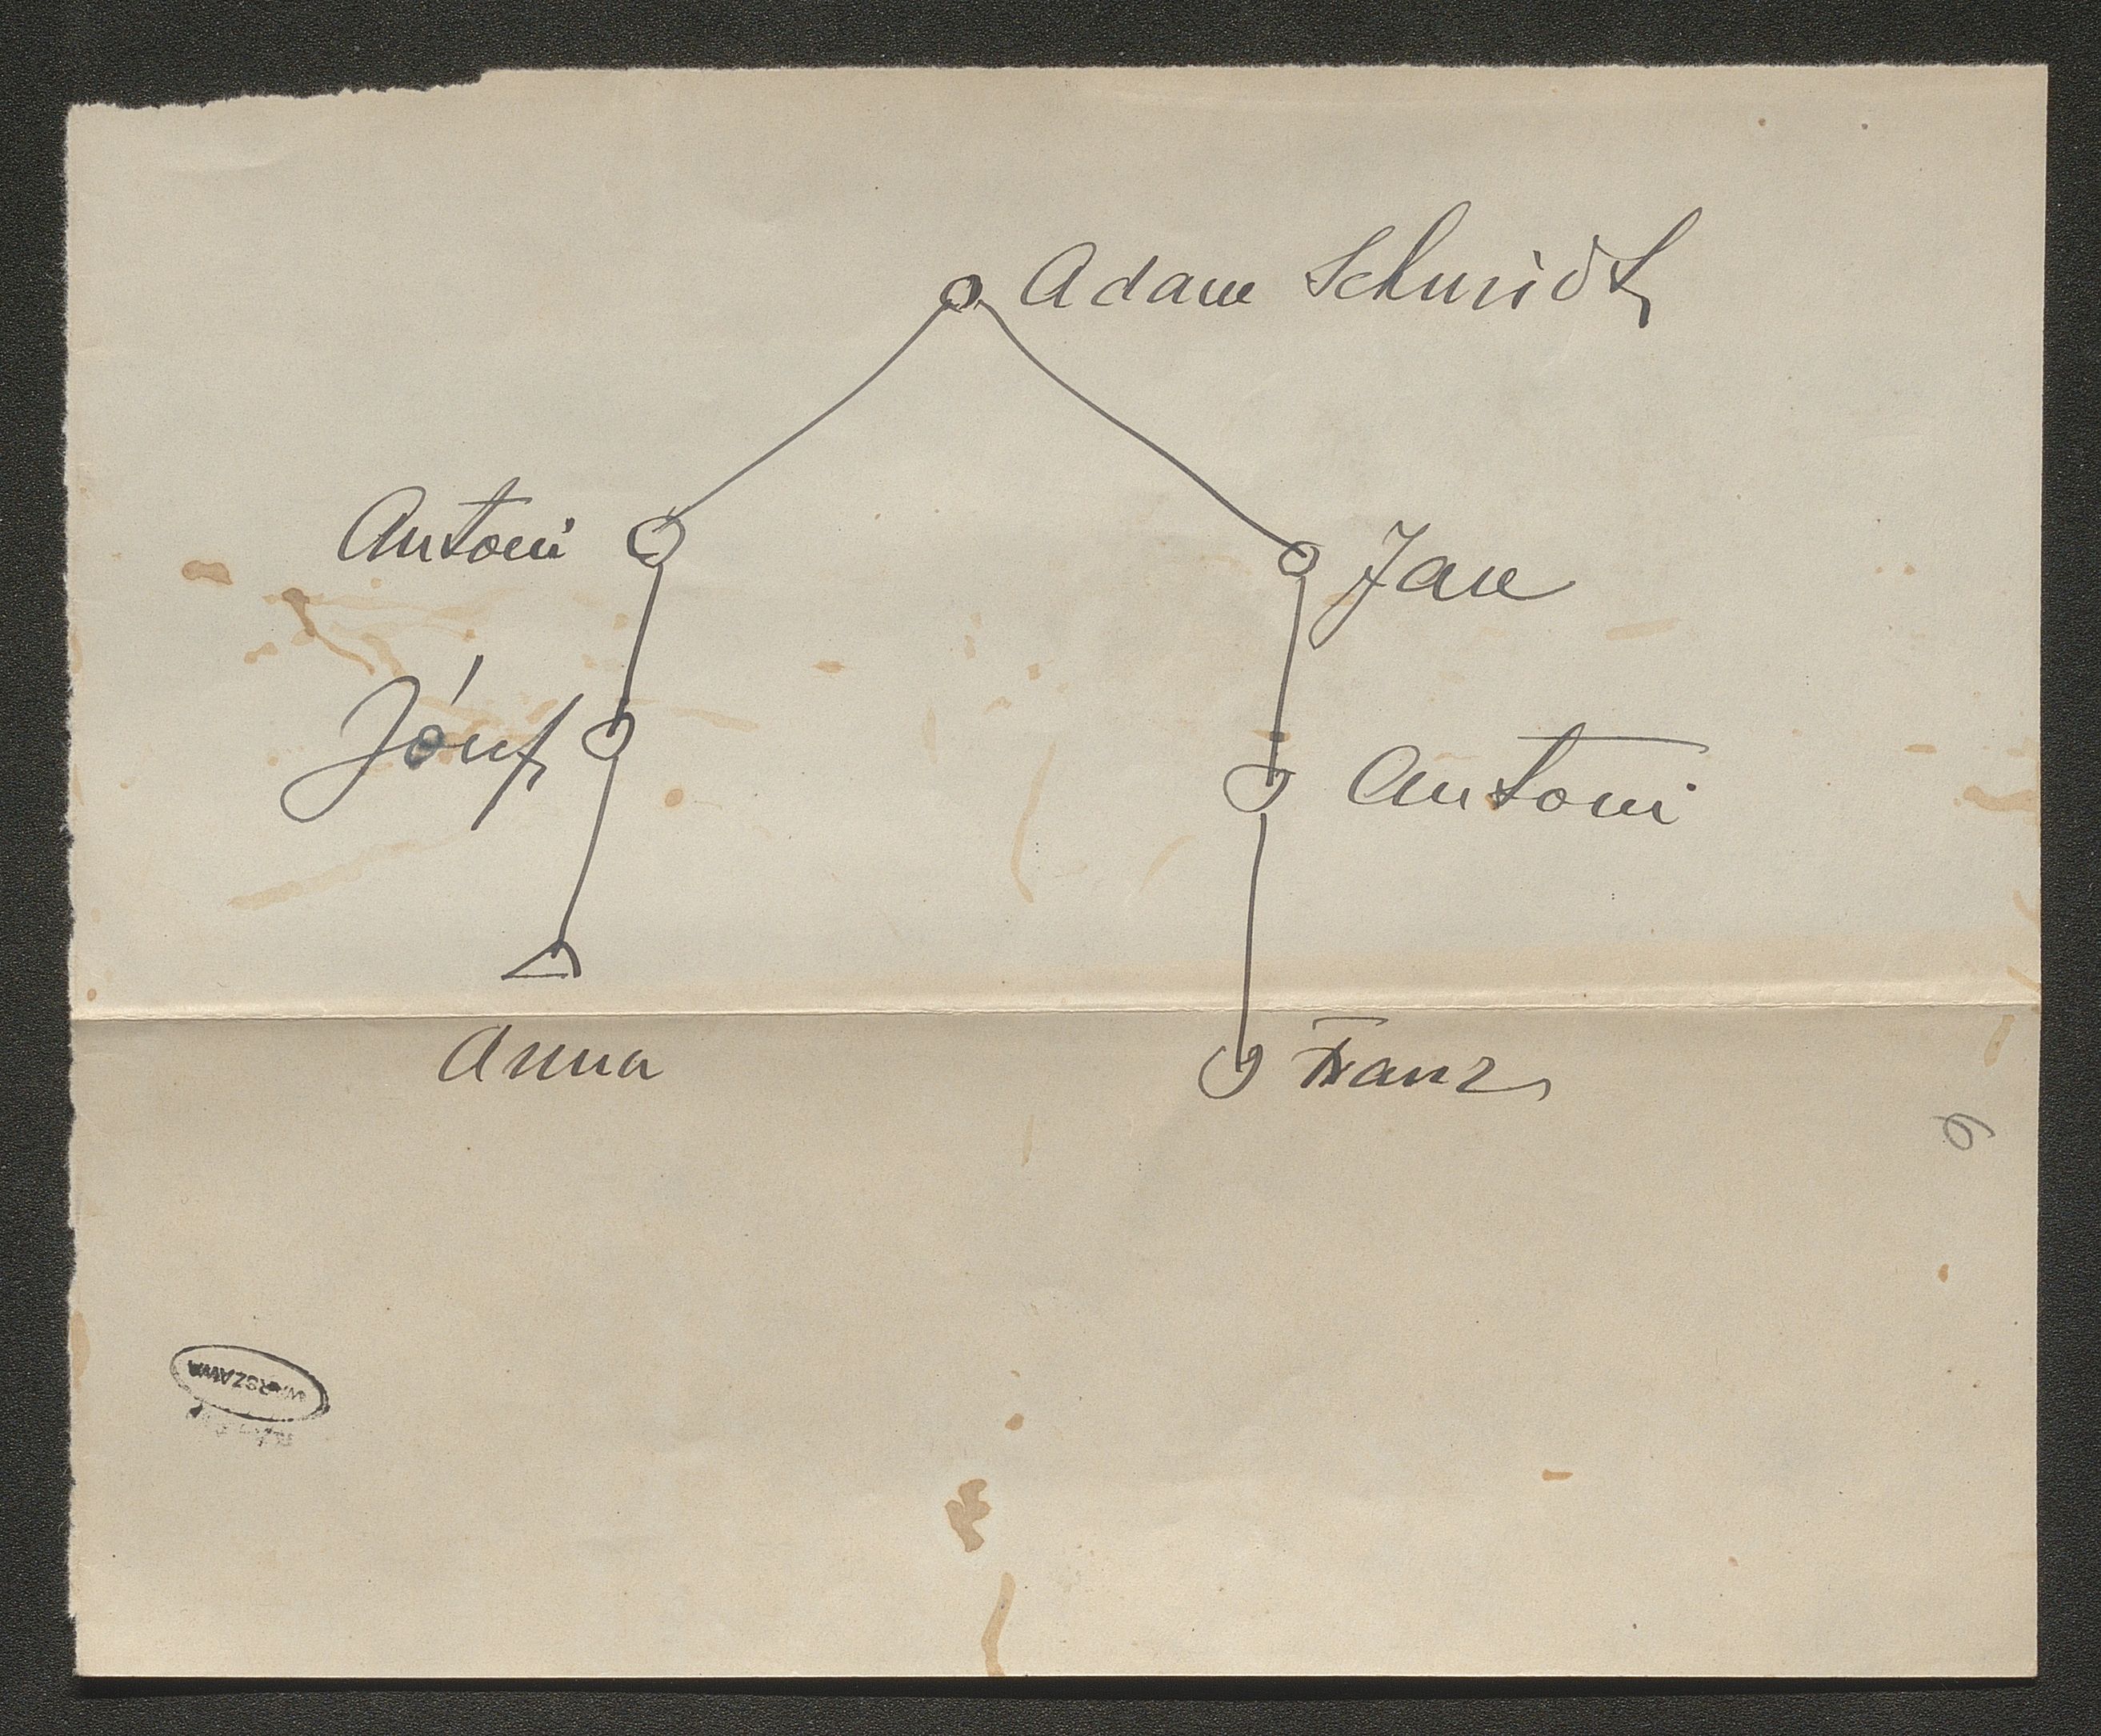 Adam Schmidt
Antoni
Jan
Józef
Antoni
Anna
Franz
6
WARSZAWA